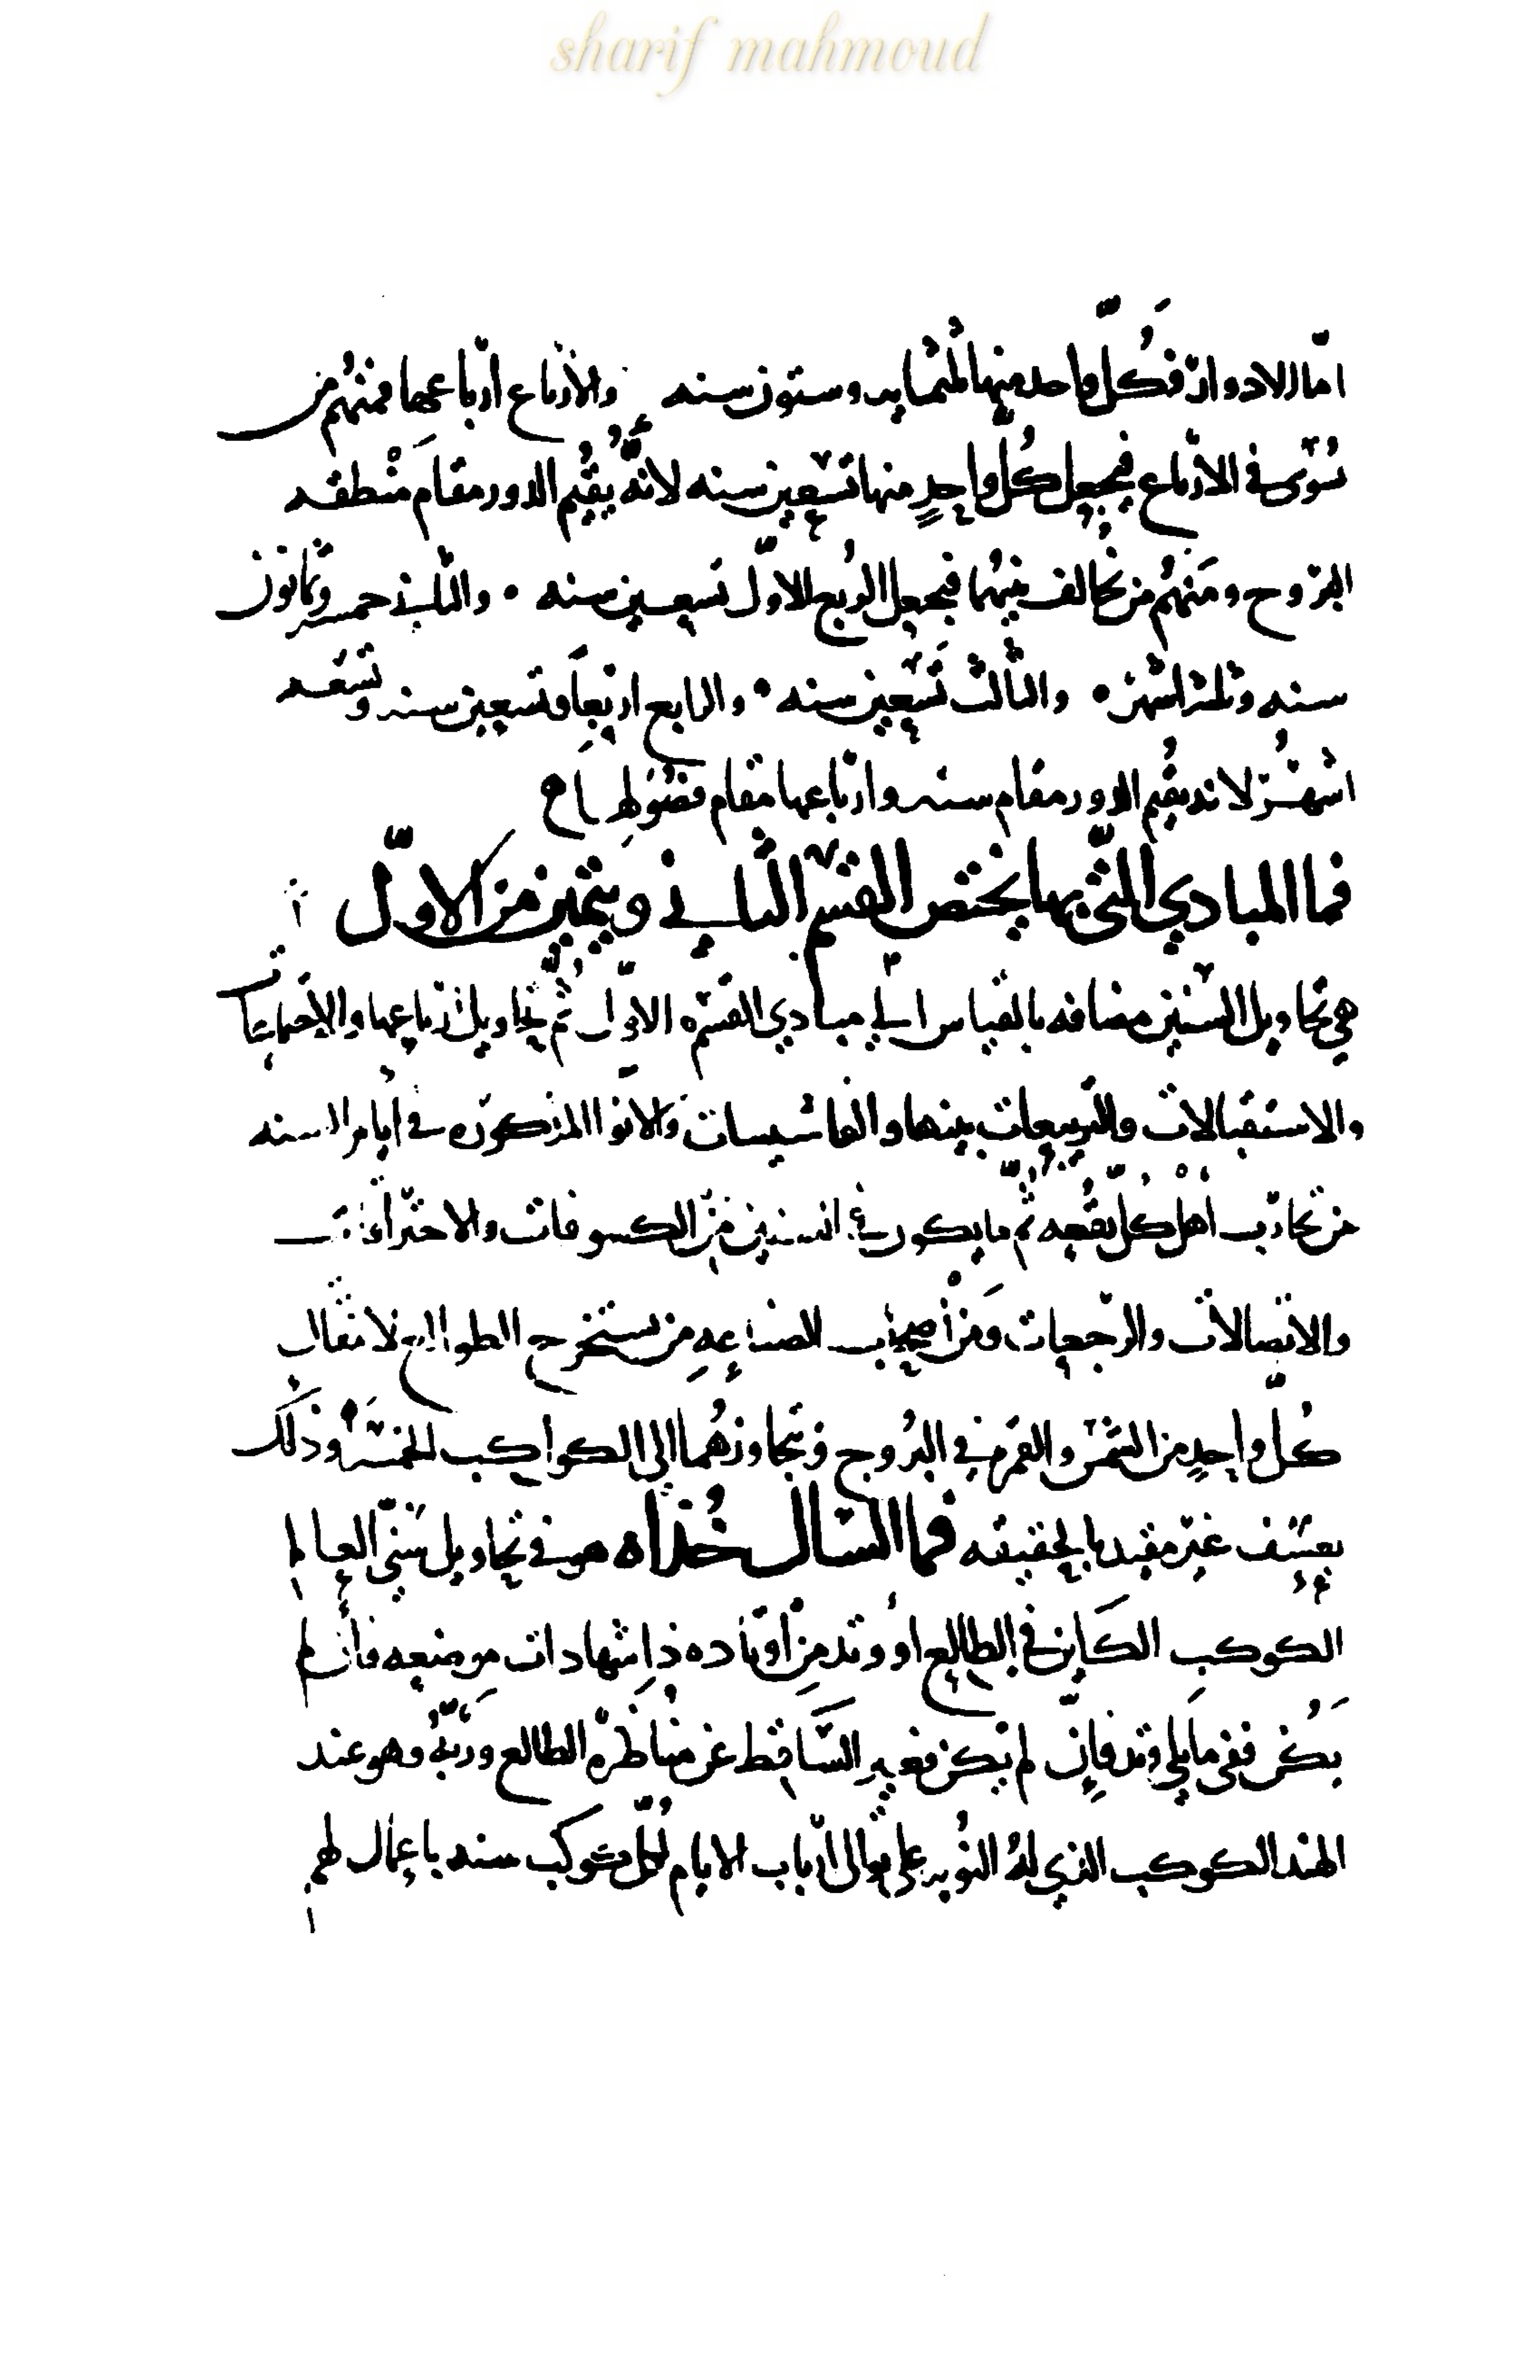 sharif mahmoud
اما الادوار فكل واحد منها ثلثمايه وستون سنه والارباع ارباعها فمنهم من
سوى في الارباع فيجعل كل واحد منها تسعين سنه لانه يقيم الدور مقام منطقه
البروج ومنهم من يخالف بينها فيجعل الربع الاول تسعين سنه • والثاني خمسه وثمانون
سنه وثلثه اشهر • والثالث تسعين سنه • والرابع اربعا وتسعين سنه وتسعه
اشهر لانه يقيم الدور مقام سنه وارباعها مقام فصولها
فما المبادي التي بها يختص القسم الثاني ويتميز من الاول
هي تحاويل السنين مضافه بالقياس الي مبادي القسم الاول ثم تحاويل ارباعها والاجتماعات
والاستقبالات والتربيعات بينها والفاسيسات والانوا المذكوره في ايام السنه
من تجارب اهل كل بقعه ثم ما يكون في السنين من الكسوفات والاحتراقات
والاتصالات والرجعات ومن اصحاب الصناعه من يستخرج الطوالع لانتقال
كل واحد من الشمس والقمر في البروج ويتجاوزهما الي الكواكب الخمسه وذلك
تعسف غير مفيد بالحقيقه فما السال خذاه هو في تحاويل سني العالم
الكوكب الكاين في الطالع او وتد من اوتاده ذا شهادات من موضعه فان لم
يكن ففي ما يلي وتد فان لم يكن فغير الساقط عن مناظره الطالع وربه وهو عند
الهند الكوكب الذي له النوبه علي توالي ارباب الايام لكل كوكب سنه باعمال لهم